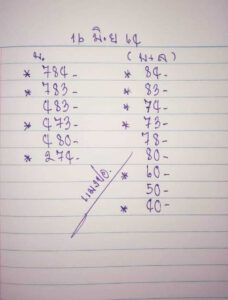 16 มิ.ย 64
บ.
* 784-
* 783-
483-
* 473-
480-
* 274-
(บ+ล)
* 84-
* 83-
* 74-
* 73-
78-
80-
* 60-
50-
* 40-